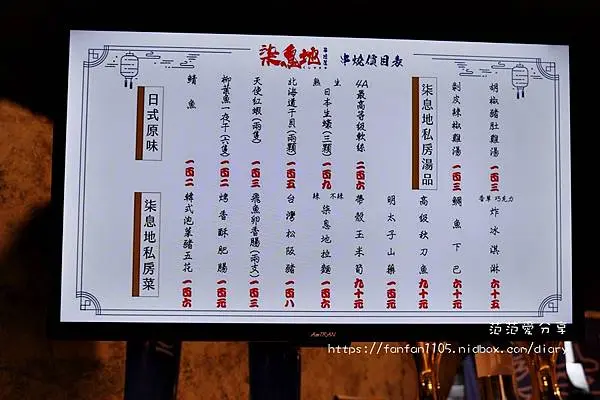 柒息地 串燒價目表
柒息地私房湯品
胡椒豬肚雞湯 一四三
剝皮辣椒雞湯 一四三
4A最高等級軟絲 二四六
熟 生
日本生蠔(三顆) 一四九
北海道干貝(兩顆) 一四五
天使紅蝦(兩隻) 一四三
柳葉魚一夜干(六隻) 一四二
鯖魚 一四二
日式原味
香草 巧克力
炸冰淇淋 六十五
鯛魚下巴 六十元
高級秋刀魚 九十元
明太子山藥 一四元
帶殼玉米筍 九十元
辣 不辣
柒息地拉麵 一四六
台灣松阪豬 一四八
飛魚卵香腸(兩支) 一四三
烤香酥肥腸 一四元
韓式泡菜豬五花 一四六
柒息地私房菜
AmTRAN
泡泡愛分享
https://fanfan1105.nidbox.com/diary